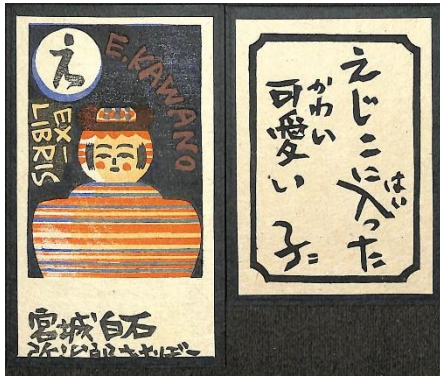 え
E. KAWANO
EX-
LIBRIS
宮城白石
弥治郎
えじこに入った
はい
可愛い子
かわい
こ